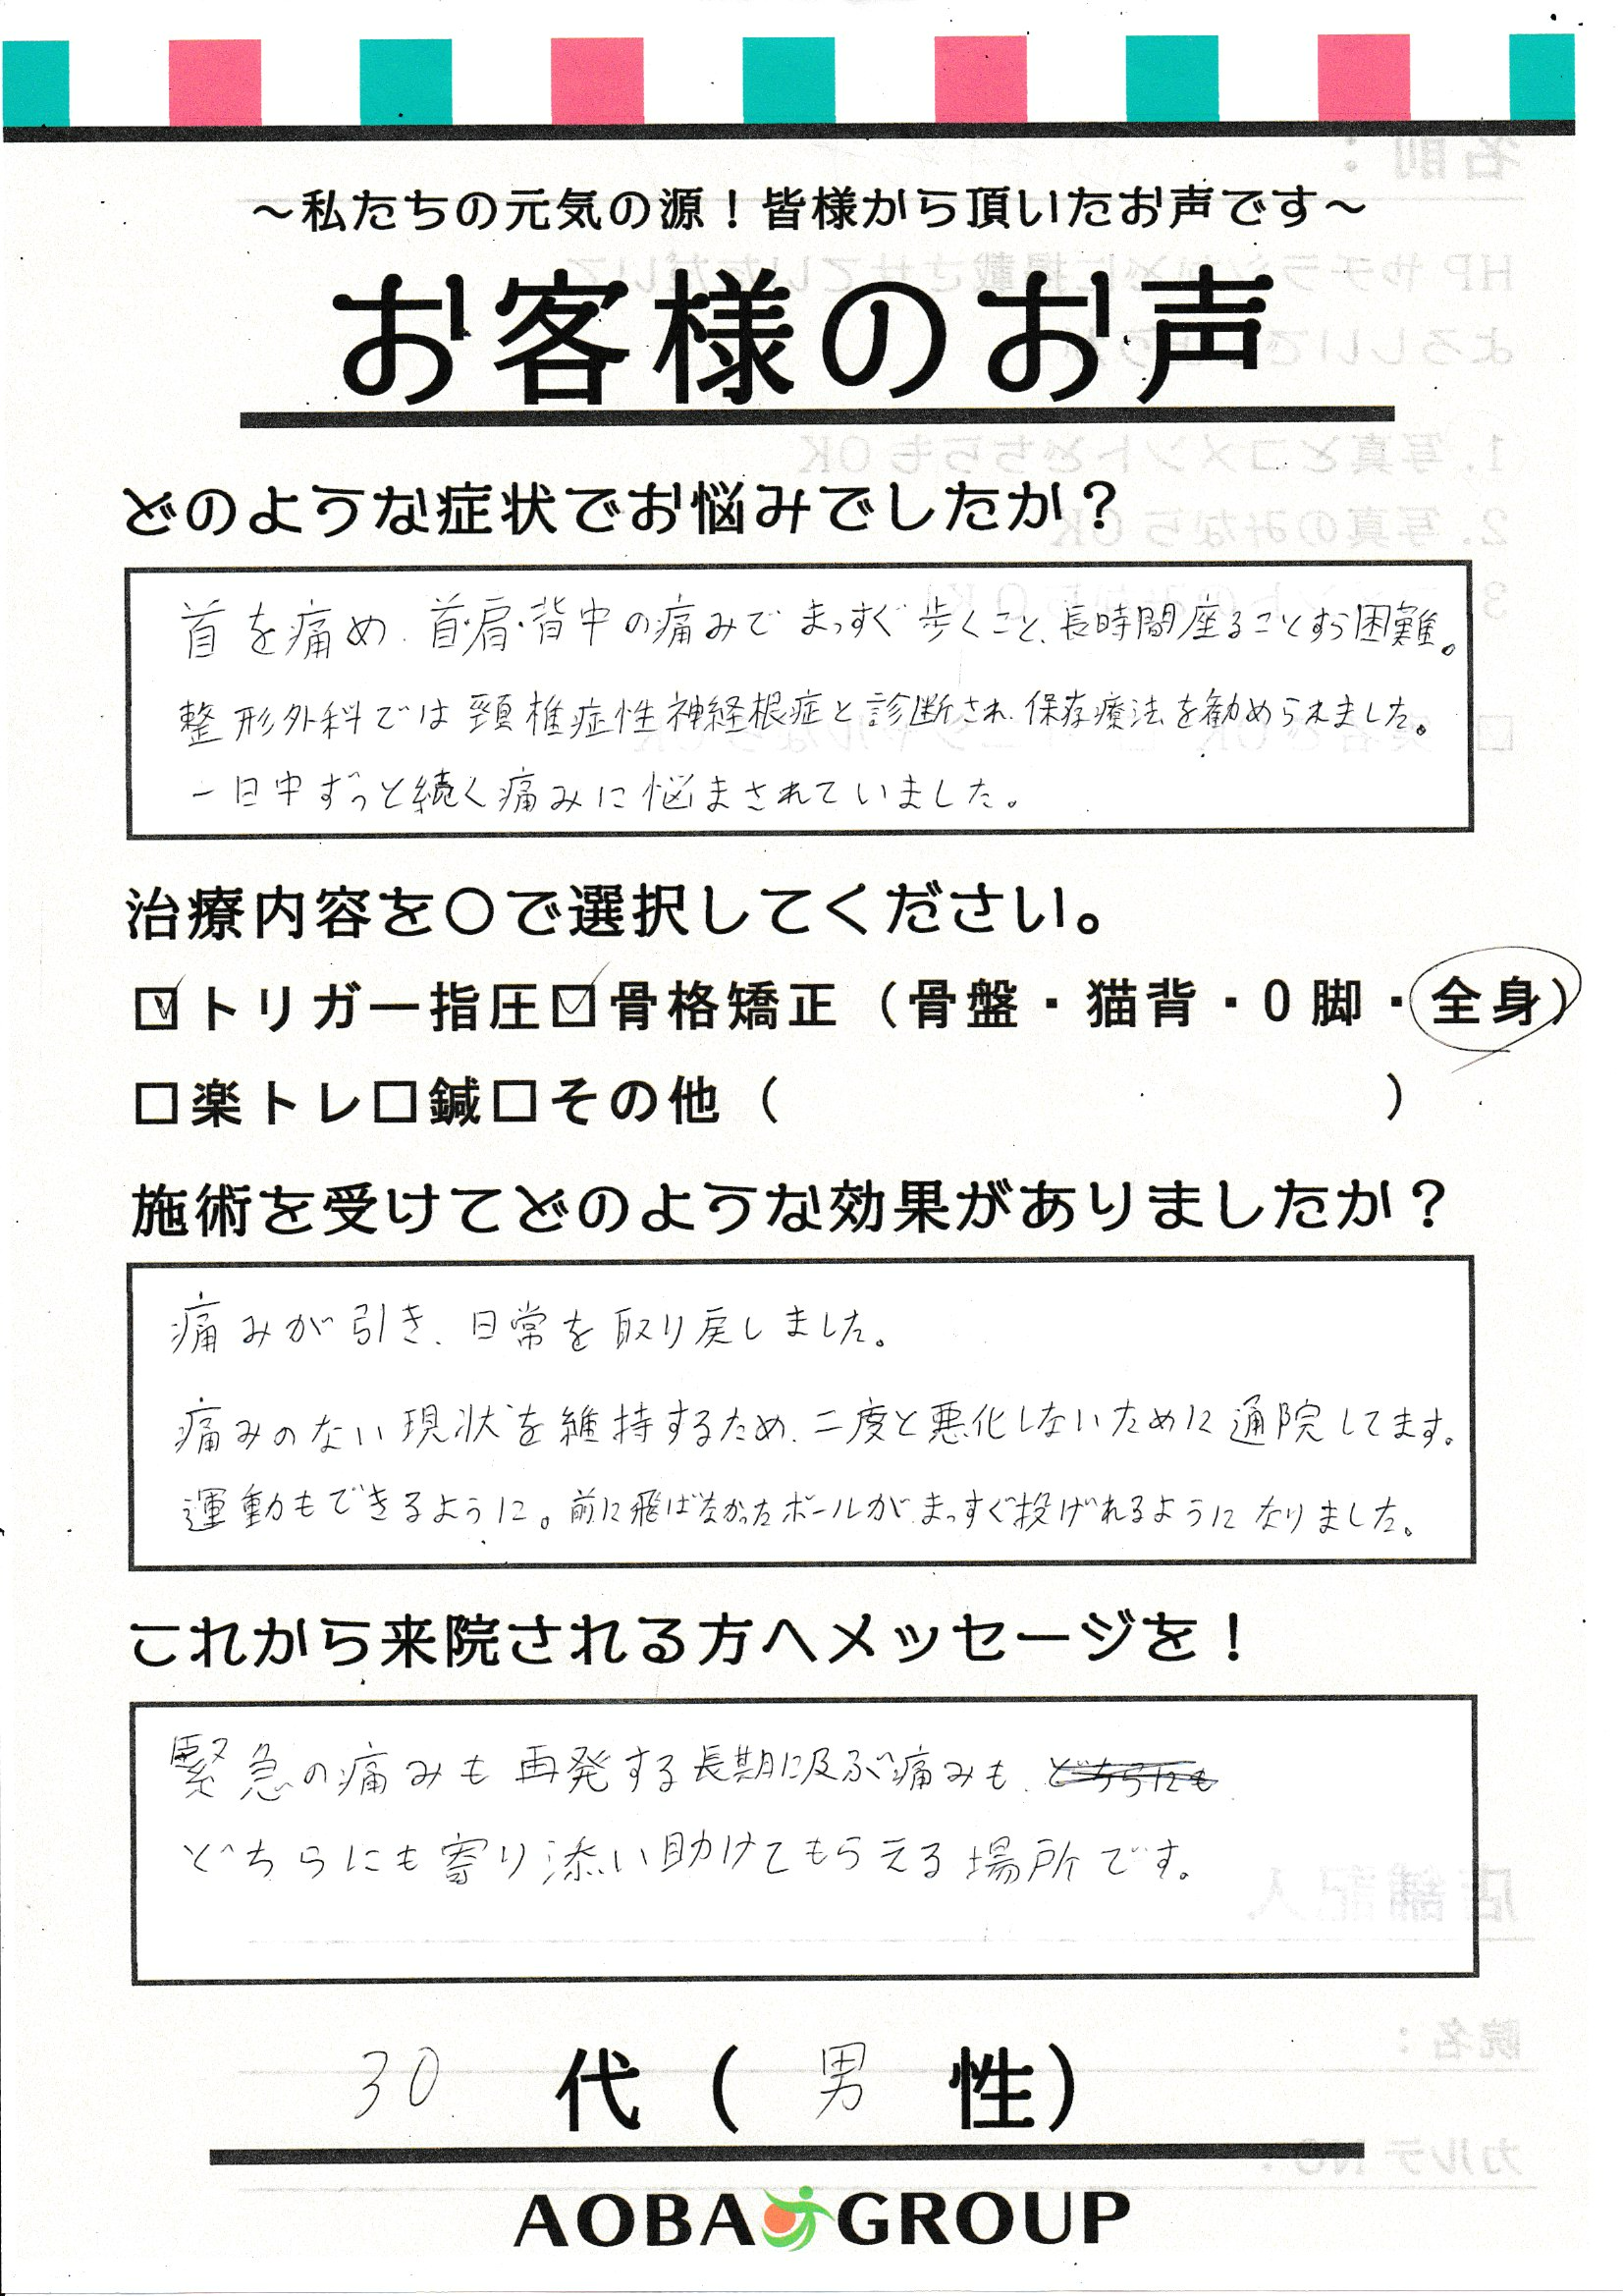 ～私たちの元気の源！皆様から頂いたお声です～
お客様のお声
どのような症状でお悩みでしたか？
首を痛め、首・肩・背中の痛みでまっすぐ歩くこと、長時間座ることすら困難。
整形外科では頸椎症性神経根症と診断され、保存療法を勧められました。
一日中ずっと続く痛みに悩まされていました。
治療内容を〇で選択してください。
☑トリガー指圧☑骨格矯正（骨盤・猫背・O脚・全身）
□楽トレ□鍼□その他（　　　　　）
施術を受けてどのような効果がありましたか？
痛みが引き、日常を取り戻しました。
痛みのない現状を維持するため、二度と悪化しないために通院してます。
運動もできるように。前に飛ばなかったボールが、まっすぐ投げれるようになりました。
これから来院される方へメッセージを！
緊急の痛みも再発する長期に及ぶ痛みも、どちらにも
どちらにも寄り添い助けてもらえる場所です。
30代（男性）
AOBA GROUP